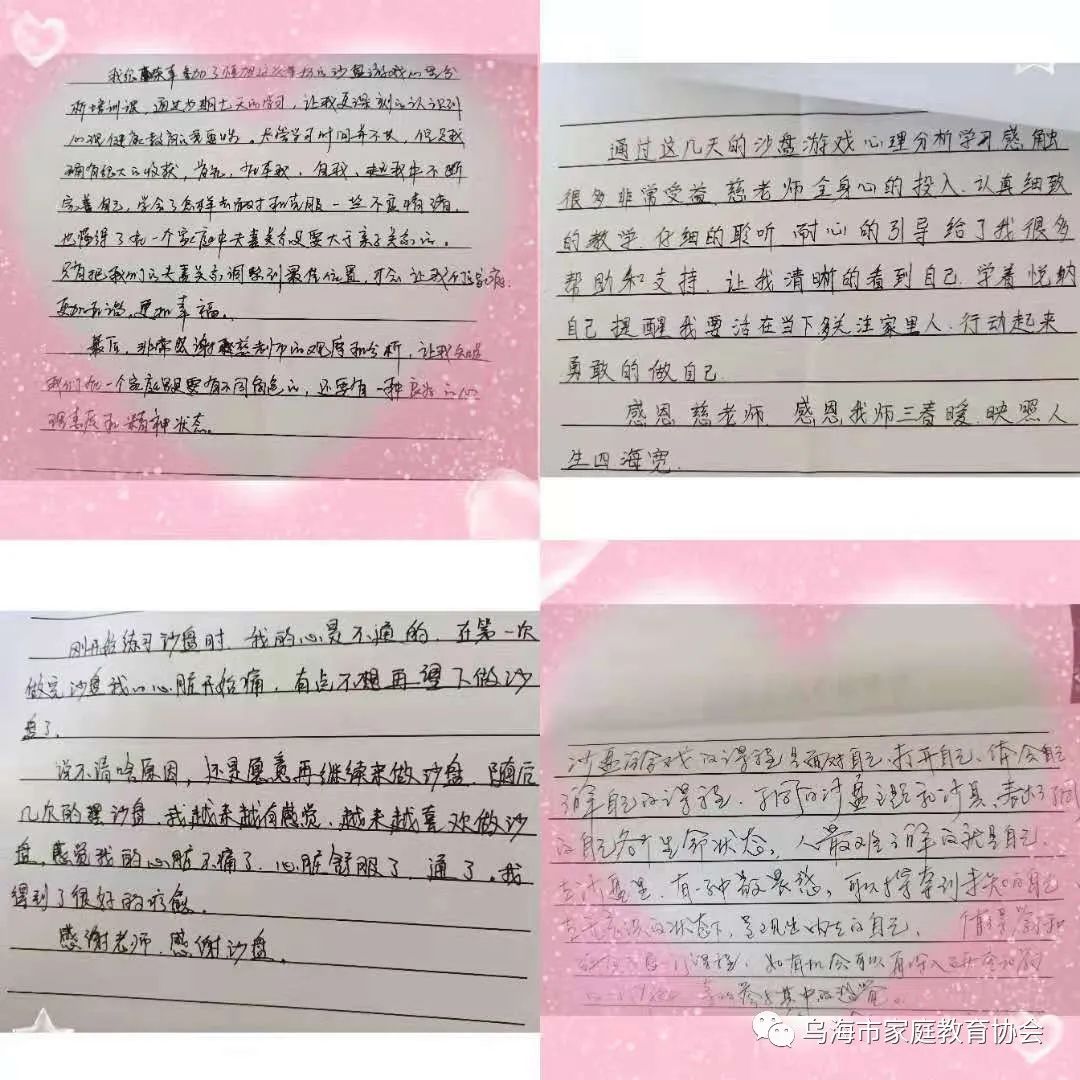 我很荣幸参加了 沙盘游戏心理分
析培训课，通过 期七天的学习，让我更深刻的认识到
心理健康教育的重要性。尽管学习时间并不长，但是我
确有很大的收获，首先， 自我， 不断
完善自己，学会了怎样去面对和克服一些不良情绪，
也懂得了在一个家庭中夫妻关系是要大于亲子关系的。
只有把我们的夫妻关系调整到最佳位置，才会让我们的家庭
更加和谐，更加幸福。
最后，非常感谢慈老师的 和分析，让我知道
我们在一个家庭里是要有不同角色的，还要有一种良好的心
理素质和精神状态。
通过这几天的沙盘游戏心理分析学习感触
很多非常受益，慈老师全身心的投入、认真细致
的教学、仔细的聆听、耐心的引导给了我很多
帮助和支持，让我清晰的看到自己、学着悦纳
自己提醒我要活在当下多关注家里人、行动起来
勇敢的做自己
感恩慈老师 感恩我师三春暖，映照人
生四海宽．
刚开始练习沙盘时，我的心是不通的，在第一次
做完沙盘我的心脏开始痛，有点不想再 下做沙
盘了，
说不清啥原因，还是愿意再继续来做沙盘，随后
几次的 沙盘，我越来越有感觉，越来越喜欢做沙
盘，感觉我的心脏不痛了，心脏舒服了，通了。我
得到了很好的疗愈。
感谢老师、感谢沙盘。
沙盘游戏的课程是面对自己、打开自己、体会自己
了解自己的课程，不同的沙盘主题和沙具，表达了不同
的自己各个生命状态，人最难了解的就是自己，
在沙盘里，有一种 ，可以探索到未知的自己
在无意识的状态下，呈现出内在的自己，
课程，如有机会可以再深入
参与其中的
乌海市家庭教育协会